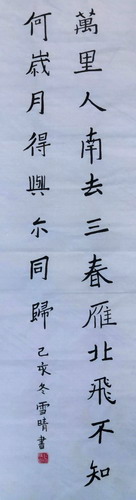 萬里人南去三春雁北飛不知
何歲月得與尒同歸
己亥冬雪晴書